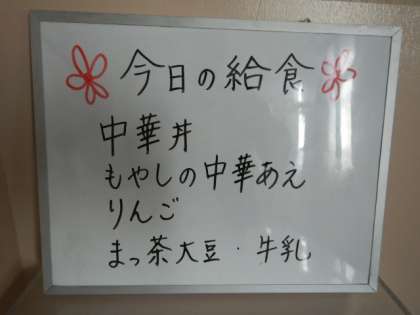 今日の給食
中華丼
もやしの中華あえ
りんご
まっ茶大豆・牛乳